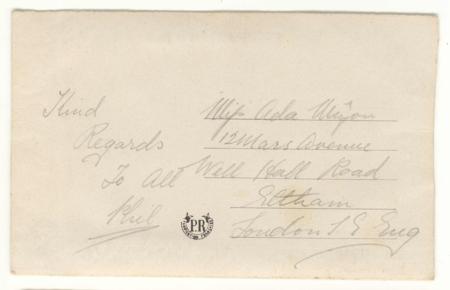 Kind
Regards
To All
Phil
Miss Ada
12 Mars Avenue
Well Hall Road
Eltham
London S E Eng
PR